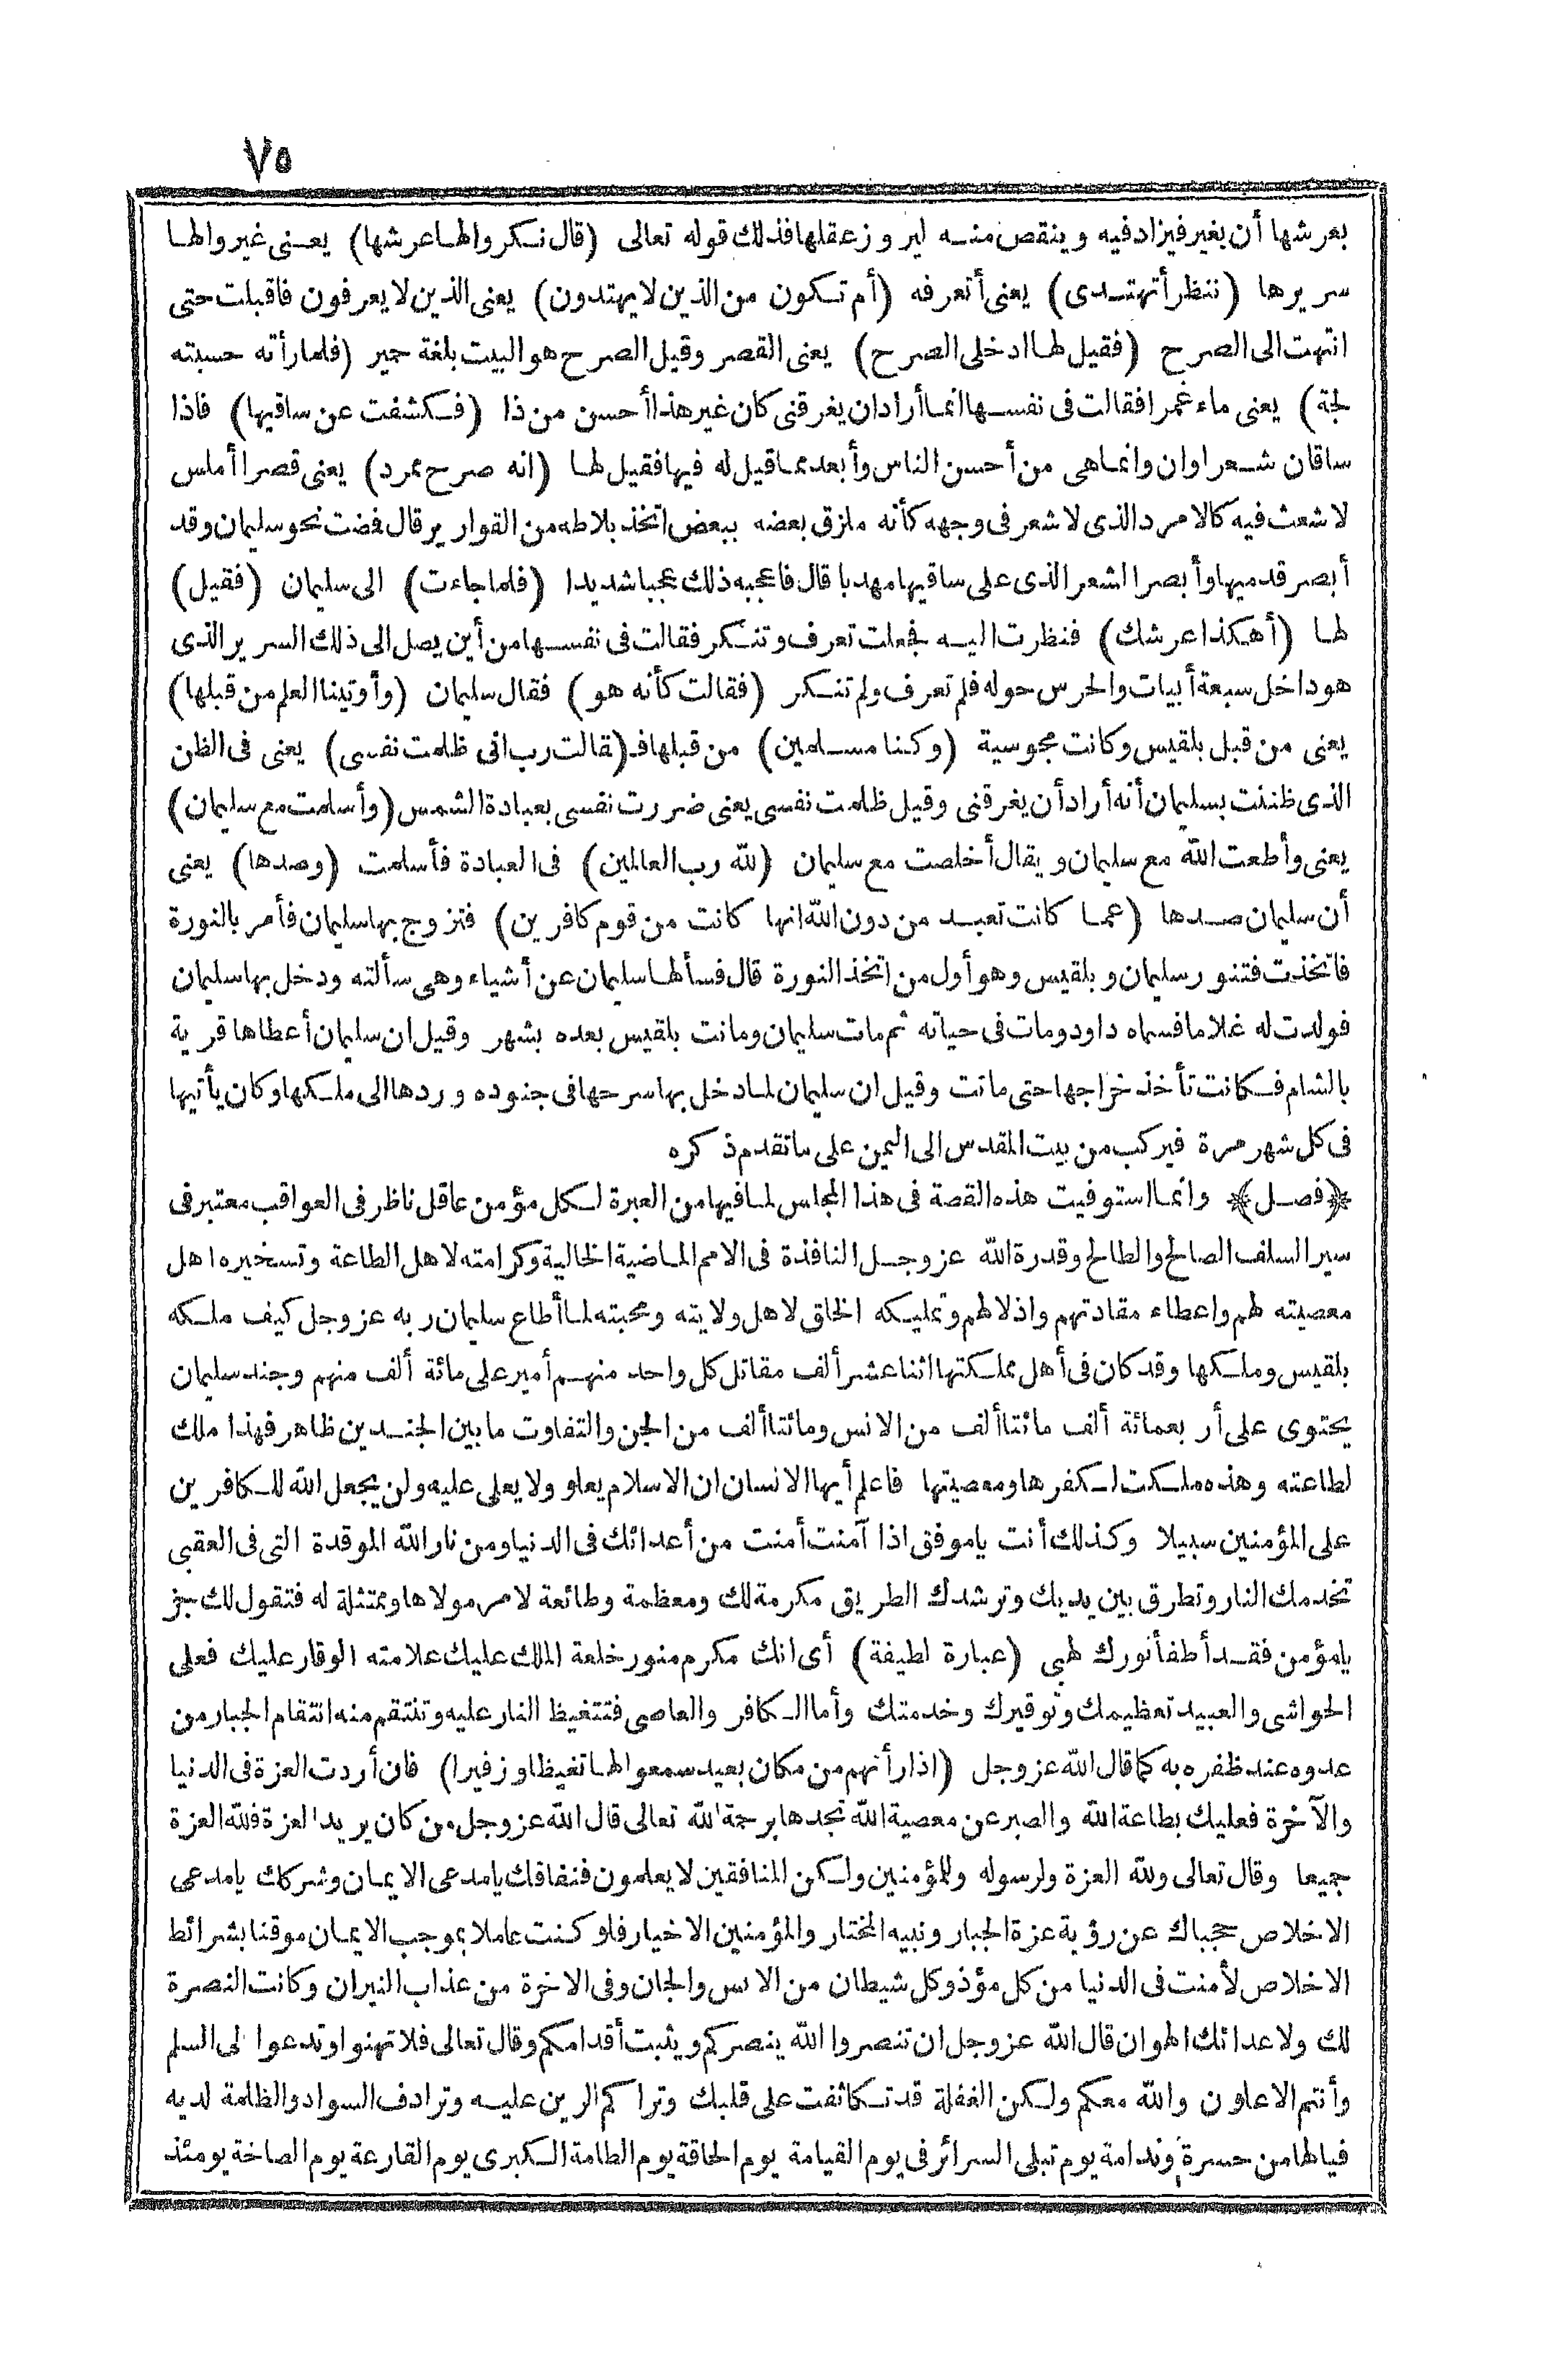 ٧٥
بعرشها أن يغير فيزاد فيه وينقص منه ليروز عقلها فذلك قوله تعالى (قال نكروا لها عرشها) يعنى غيروا لها
سريرها (ننظر أتهتدى) يعنى أتعرفه (أم تكون من الذين لا يهتدون) يعنى الذين لا يعرفون فاقبلت حتى
انتهت الى الصرح (فقيل لها ادخلى الصرح) يعنى القصر وقيل الصرح هو البيت بلغة حمير (فلما رأته حسبته
لجة) يعنى ماء غمرا فقالت فى نفسها انما أراد ان يغرقنى كان غير هذا أحسن من ذا (فكشفت عن ساقيها) فاذا
ساقان شعراوان وانما هى من أحسن الناس وأبعد مما قيل له فيها فقيل لها (انه صرح ممرد) يعنى قصرا أملس
لا شعث فيه كالامرد الذى لا شعر فى وجهه كأنه ملزق بعضه ببعض اتخذ بلاطه من القوارير قال فمضت نحو سليمان وقد
أبصر قدميها وأبصر الشعر الذى على ساقيها مهدبا قال فاعجبه ذلك عجبا شديدا (فلما جاءت) الى سليمان (فقيل)
لها (أهكذا عرشك) فنظرت اليه فجعلت تعرف وتنكر فقالت فى نفسها من أين يصل الى ذلك السرير الذى
هو داخل سبعة أبيات والحرس حوله فلم تعرف ولم تنكر (فقالت كأنه هو) فقال سليمان (وأوتينا العلم من قبلها)
يعنى من قبل بلقيس وكانت مجوسية (وكنا مسلمين) من قبلها فـ(قالت رب انى ظلمت نفسى) يعنى فى الظن
الذى ظننت بسليمان أنه أراد أن يغرقنى وقيل ظلمت نفسى يعنى ضررت نفسى بعبادة الشمس (وأسلمت مع سليمان)
يعنى وأطعت الله مع سليمان ويقال أخلصت مع سليمان (لله رب العالمين) فى العبادة فأسلمت (وصدها) يعنى
أن سليمان صدها (عما كانت تعبد من دون الله انها كانت من قوم كافرين) فتزوج بها سليمان فأمر بالنورة
فاتخذت فتنور سليمان وبلقيس وهو أول من اتخذ النورة قال فسألها سليمان عن أشياء وهى سألته ودخل بها سليمان
فولدت له غلاما فسماه داود ومات فى حياته ثم مات سليمان وماتت بلقيس بعده بشهر وقيل ان سليمان أعطاها قرية
بالشام فكانت تأخذ خراجها حتى ماتت وقيل ان سليمان لما دخل بها سرحها فى جنوده وردها الى ملكها وكان يأتيها
فى كل شهر مرة فيركب من بيت المقدس الى اليمن على ما تقدم ذكره
﴿فصل﴾ وانما استوفيت هذه القصة فى هذا المجلس لما فيها من العبرة لكل مؤمن عاقل ناظر فى العواقب معتبر فى
سير السلف الصالح والطالح وقدرة الله عز وجل النافذة فى الامم الماضية الخالية وكرامته لاهل الطاعة وتسخيره اهل
معصيته لهم واعطاء مقادتهم واذلالهم وتمليكه الخلق لاهل ولايته ومحبته لما أطاع سليمان ربه عز وجل كيف ملكه
بلقيس وملكها وقد كان فى أهل مملكتها اثنا عشر ألف مقاتل كل واحد منهم أمير على مائة ألف منهم وجند سليمان
يحتوى على أربعمائة ألف مائتا ألف من الانس ومائتا ألف من الجن والتفاوت ما بين الجندين ظاهر فهذا ملك
لطاعته وهذه ملكت لكفرها ومعصيتها فاعلم أيها الانسان ان الاسلام يعلو ولا يعلى عليه ولن يجعل الله للكافرين
على المؤمنين سبيلا وكذلك أنت يا موفق اذا آمنت أمنت من أعدائك فى الدنيا ومن نار الله الموقدة التى فى العقبى
تخدمك النار وتطرق بين يديك وترشدك الطريق مكرمة لك ومعظمة وطائعة لامر مولاها وممتثلة له فتقول لك جز
يا مؤمن فقد أطفأ نورك لهبى (عبارة لطيفة) أى انك مكرم منور خلعة الملك عليك علامته الوقار عليك فعلى
الحواشى والعبيد تعظيمك وتوقيرك وخدمتك وأما الكافر والعاصى فتتغيظ النار عليه وتنتقم منه انتقام الجبار من
عدوه عند ظفره به كما قال الله عز وجل (اذا رأتهم من مكان بعيد سمعوا لها تغيظا وزفيرا) فان أردت العزة فى الدنيا
والآخرة فعليك بطاعة الله والصبر عن معصية الله تجدها برحمة الله تعالى قال الله عز وجل من كان يريد العزة فلله العزة
جميعا وقال تعالى ولله العزة ولرسوله وللمؤمنين ولكن المنافقين لا يعلمون فنفاقك يا مدعى الايمان وشركك يا مدعى
الاخلاص حجباك عن رؤية عزة الجبار ونبيه المختار والمؤمنين الاخيار فلو كنت عاملا بموجب الايمان موقنا بشرائط
الاخلاص لأمنت فى الدنيا من كل مؤذ وكل شيطان من الانس والجان وفى الاخرة من عذاب النيران وكانت النصرة
لك ولاعدائك الهوان قال الله عز وجل ان تنصروا الله ينصركم ويثبت أقدامكم وقال تعالى فلا تهنوا وتدعوا الى السلم
وأنتم الاعلون والله معكم ولكن الغفلة قد تكاثفت على قلبك وتراكم الرين عليه وترادف السواد والظلمة لديه
فيا لها من حسرة وندامة يوم تبلى السرائر فى يوم القيامة يوم الحاقة يوم الطامة الكبرى يوم القارعة يوم الصاخة يومئذ